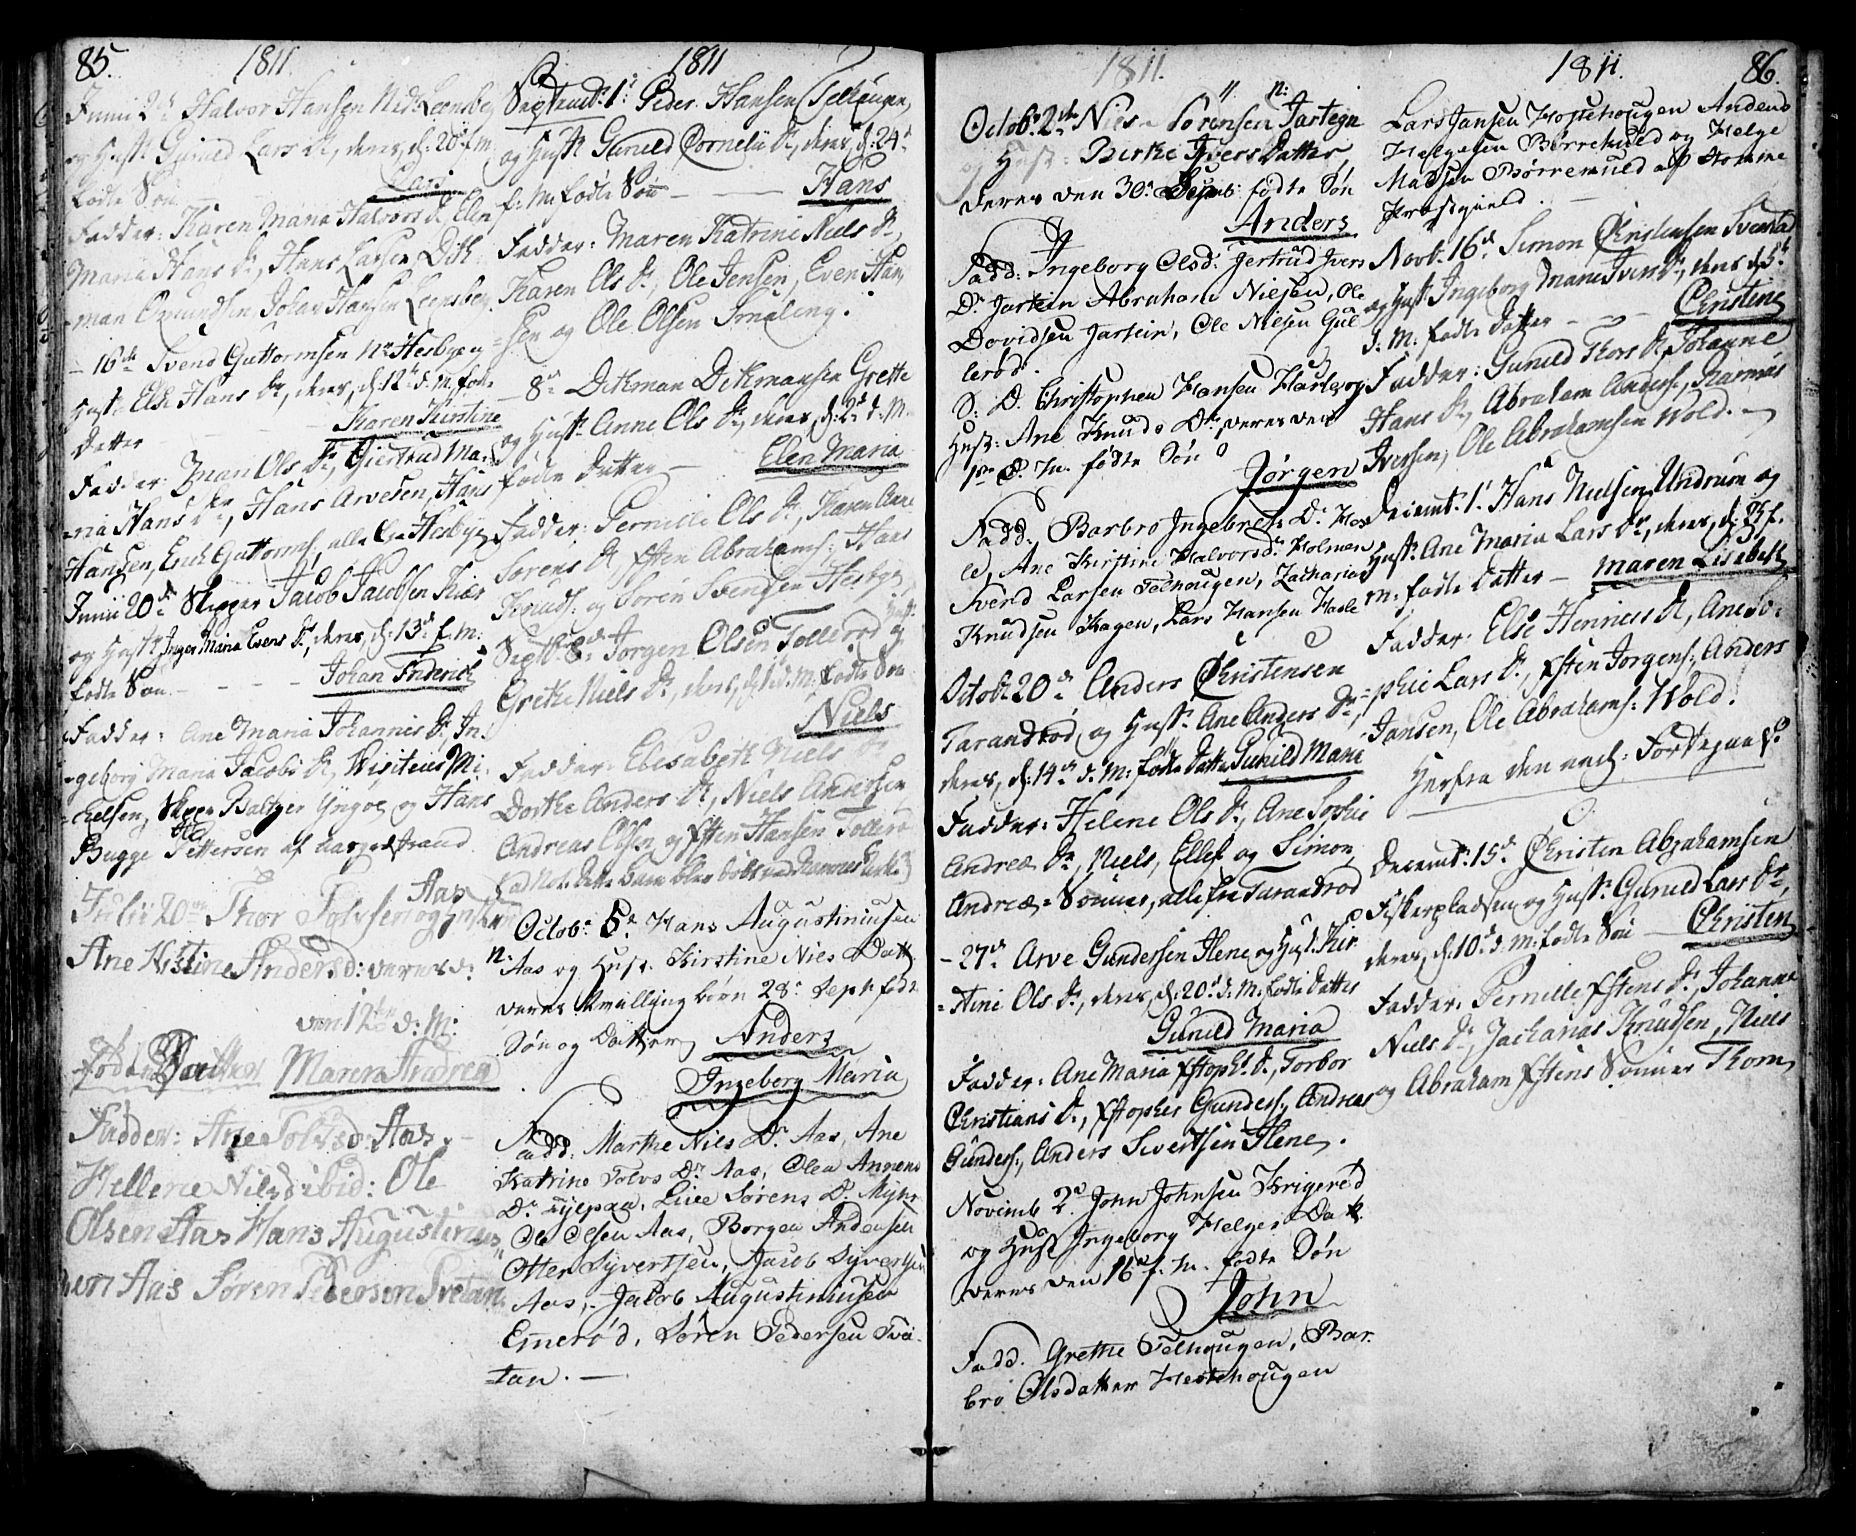 85.
1811.
Junii 2 Halvor Hansen Leensbe
og Hustr Gunild Lars Dr, deres, d: 20 f. m.
fødte Søn
Fadder: Karen Maria Halvors Dr, Elen
Maria Hans Dr, Hans Larsen, Dith-
-man Johan Hansen Leensbe
- 16de Svend Guttormsen Hesbye og
Hustr. Else Hans Dr, deres, d: 12 d. M. fødte
Datter - - Karen Kirstine
Fadder: Ols Dr, Giertrud Ma-
-ria Hans Dr, Hans Arvesen, Hans
Hansen, Erich Guttorms, alle fra Hesbye
Junii 20de Skipper Jacob Jacobsen
og Hustr. Inger Maria Evens Dr, deres, d: 13de f. m.
fødte Søn - - - - Johan Friderich
Fadder: Ane Maria Johannis Dr, In-
-geborg Maria Jacobs Dr, Mi-
-chelsen, Skipper Baltzer Yngve, og Hans
Bugge Pettersen af Langestrand
Aas
Julii 20 Thor Tolvsen og
Ane Kistine Andersd: deres d:
den 12te d: M:
fødte Datter Maren Andrea
Fadder: Ane Tolvsd: Aas,
Hellene Nilsd ibid: Ole
Olsen Aas Hans Augustinus
sen Aas Søren Pedersen Svetan
1811
Septembr. 1 Peder Hansen Telhougen,
og Hustr. Gunild Cornelii Dr, deres, d: 24
f: M: fødte Søn - - Hans
Fadder: Maren Katrine Niels Dr,
Karen Ols Dr, Ole Jensen, Even Han-
-sen og Ole Olsen Smaleng.
- 8de Dithman Dithmansen Grette
og Hustr. Anne Ols Dr, deres, d: 2 d. M.
fødte Datter - Elen Maria
Fadder: Pernille Ols Dr, Karen Ane
Sørens Dr, Abrahams: Hans
Knuds: og Søren Svendsen Hesbye
Septb. 8de Jørgen Olsen Tollerød og
Grethe Niels Dr, deres, d. d. M. fødte Søn
Niels
Fadder: Elisabeth Niels Dr
Dorthe Anders Dr, Niels Andersen
Andreas Olsen, og Hansen Tollerø
Octob: 6 Hans Augustiniusen
n: Aas og Hust. Kirstine Niels Datt.
deres tvilling børn 28 Septr. født
Søn og Datter Anders
Ingeborg Maria
Fadd: Marthe Nils Dr Aas, Ane
Katrine Tolvs Dr Aas, Olea
Dr Live Sørens Dr
Ole Olsen Aas, Borger Andersen
Otter Syvertsen, Jacob Syversen
Aas, Jacob Augustiniusen
Emerød, Søren Pedersen Svei-
-tan. -
1811.
Octob: 2de Niels Sørensen Jartegn
og Hust: Birthe Ivers Datter,
deres den 30 fødte Søn
Anders
Fadd: Ingeborg Olsd: Jertrud Ivers
Dr Jartein Abraham Nielsen, Ole
Davidsen Jartein, Ole Nielsen Gul
lerød.
S: D. Christopher Hansen Hasle og
Hust: Ane Knuds Dr, deres den
1ste d. M. fødte Søn
Jørgen
Fadd: Barbro Ingebrets Dr Has
le, Ane Kirstine Halvorsd: Holmen
Svend Larsen Telhougen, Zacharias
Knudsen Hagen, Lars Hansen Hasle
Octob: 20de Anders Christensen
Tarandrød, og Hustr. Ane Anders Dr,
deres, d: 14de d. M: fødte Datter Gunild Marie
Fadder: Helene Ols Dr, Ane Sophie
Andreæ Dr, Niels, Ellef og Simon
Andreæ Sønner, alle fra Tarandrød
- 27de Arve Gundersen Ilene og Hust. Kir-
-stine Ols Dr, deres, d: 20 d. M: fødte Datter
Gunild Maria
Fadder: Ane Maria Dr, Torbor
Christians Dr, Gunders:, Andreas
Gunders:, Anders Sivertsen Ilene.
Novemb 2 John Johnsen Krigerød
og Hust Ingeborg Helges Datt.
deres den 16 f. M. fødte Søn
John
Fadd. Grethe Telhougen, Bar-
bro Olsdatter Hestehougen
1811.
86.
Lars Jansen Hestehougen Anders
Helgesen Børrevuld og Helge
Madsen Børrevuld af Homme
Præstegield.
Novb. 16de Simon Christensen Svenstad
og Hustr Ingeborg Maria Ivers Dr, deres d. 5te
d: M. fødte Datter - - Christine
Fadder: Gunild Thors Dr, Johanne
Hans Dr, Abraham Anders:, Rasmus
Iversen, Ole Abrahamsen Wold. -
Decemb: 1 Hans Nielsen Undrum og
Hustr. Ane Maria Lars Dr, deres, d: f.
m: fødte Datter - Maren Lisabeth
Fadder: Else Henrics Dr, Ane So-
-phie Lars Dr, Jørgens:, Anders
Jansen, Ole Abrahams: Wold.
Herfra den
Decemb: 15de Christen Abrahamsen
Fiskerpladsen, og Hustr. Gunild Lars Dr,
deres, d: 10 d. m: fødte Søn - Christen
Fadder: Pernille Dr, Johanna
Niels Dr, Zacharias Knudsen, Niels
og Abraham Sønner Thorn